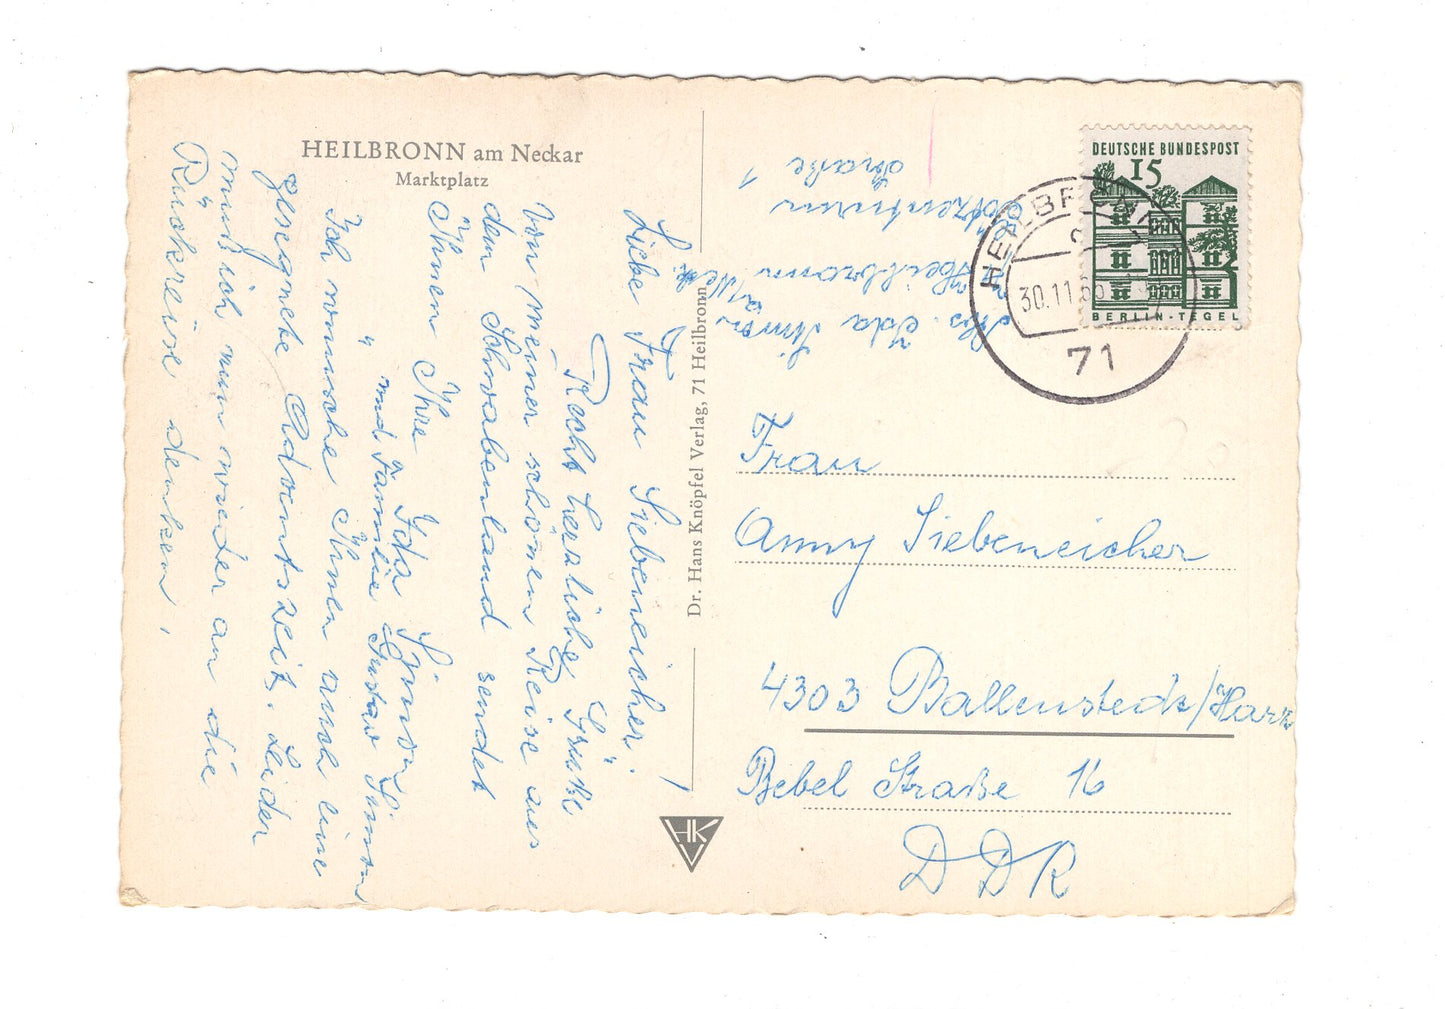 HEILBRONN am Neckar
Marktplatz
Liebe Frau Siebeneicher!
Recht herzliche Grüße
von meiner schönen Reise aus
dem Schwabenland sendet
Ihnen Ihre Ida Simon.
" und Familie Gustav Simon
Ich wünsche Ihnen auch eine
gesegnete Adventszeit. Leider
muß ich nun wieder an die
Rückreise denken.
Dr. Hans Knöpfel Verlag, 71 Heilbronn
HK
V
Abs. Ida Simon
Heilbronn
Straße 1
DEUTSCHE BUNDESPOST
15
BERLIN-TEGEL
HEILBRONN
30.11.
71
Frau
Anny Siebeneicher
4303 Ballenstedt/Harz
Bebel Straße 16
DDR